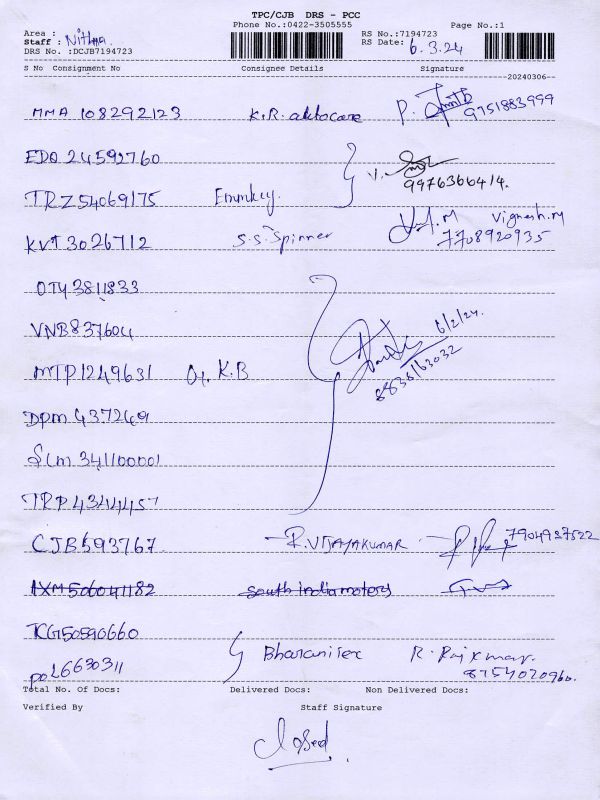 TPC/CJB DRS - PCC
Phone No.:0422-3505555 Page No.:1
Area : RS No.:7194723
Staff : Nithya RS Date: 6.3.24
DRS No. :DCJB7194723
S No Consignment No Consignee Details Signature
20240306
MMA 108292123 K.R. autocare P. 9751883999
EDQ 24592760
V. 9976366414.
TRZ 54069175
KVT 3026712 S.S. Spinner M Vignesh.M
7708920935
OTY 3811833
VNB 837604 6/2/24.
MTP 1249631 K.B 8836163032
DPM 437269
SLM 341100001
TRP 4344457
CJB 593767 R. VIJAYAKUMAR 7904937522
IXM 506041182 South india motors
TCG 50590660
Bharani Tex R. Rajkumar.
POL 6630311 8754020960.
Total No. Of Docs: Delivered Docs: Non Delivered Docs:
Verified By Staff Signature
Closed